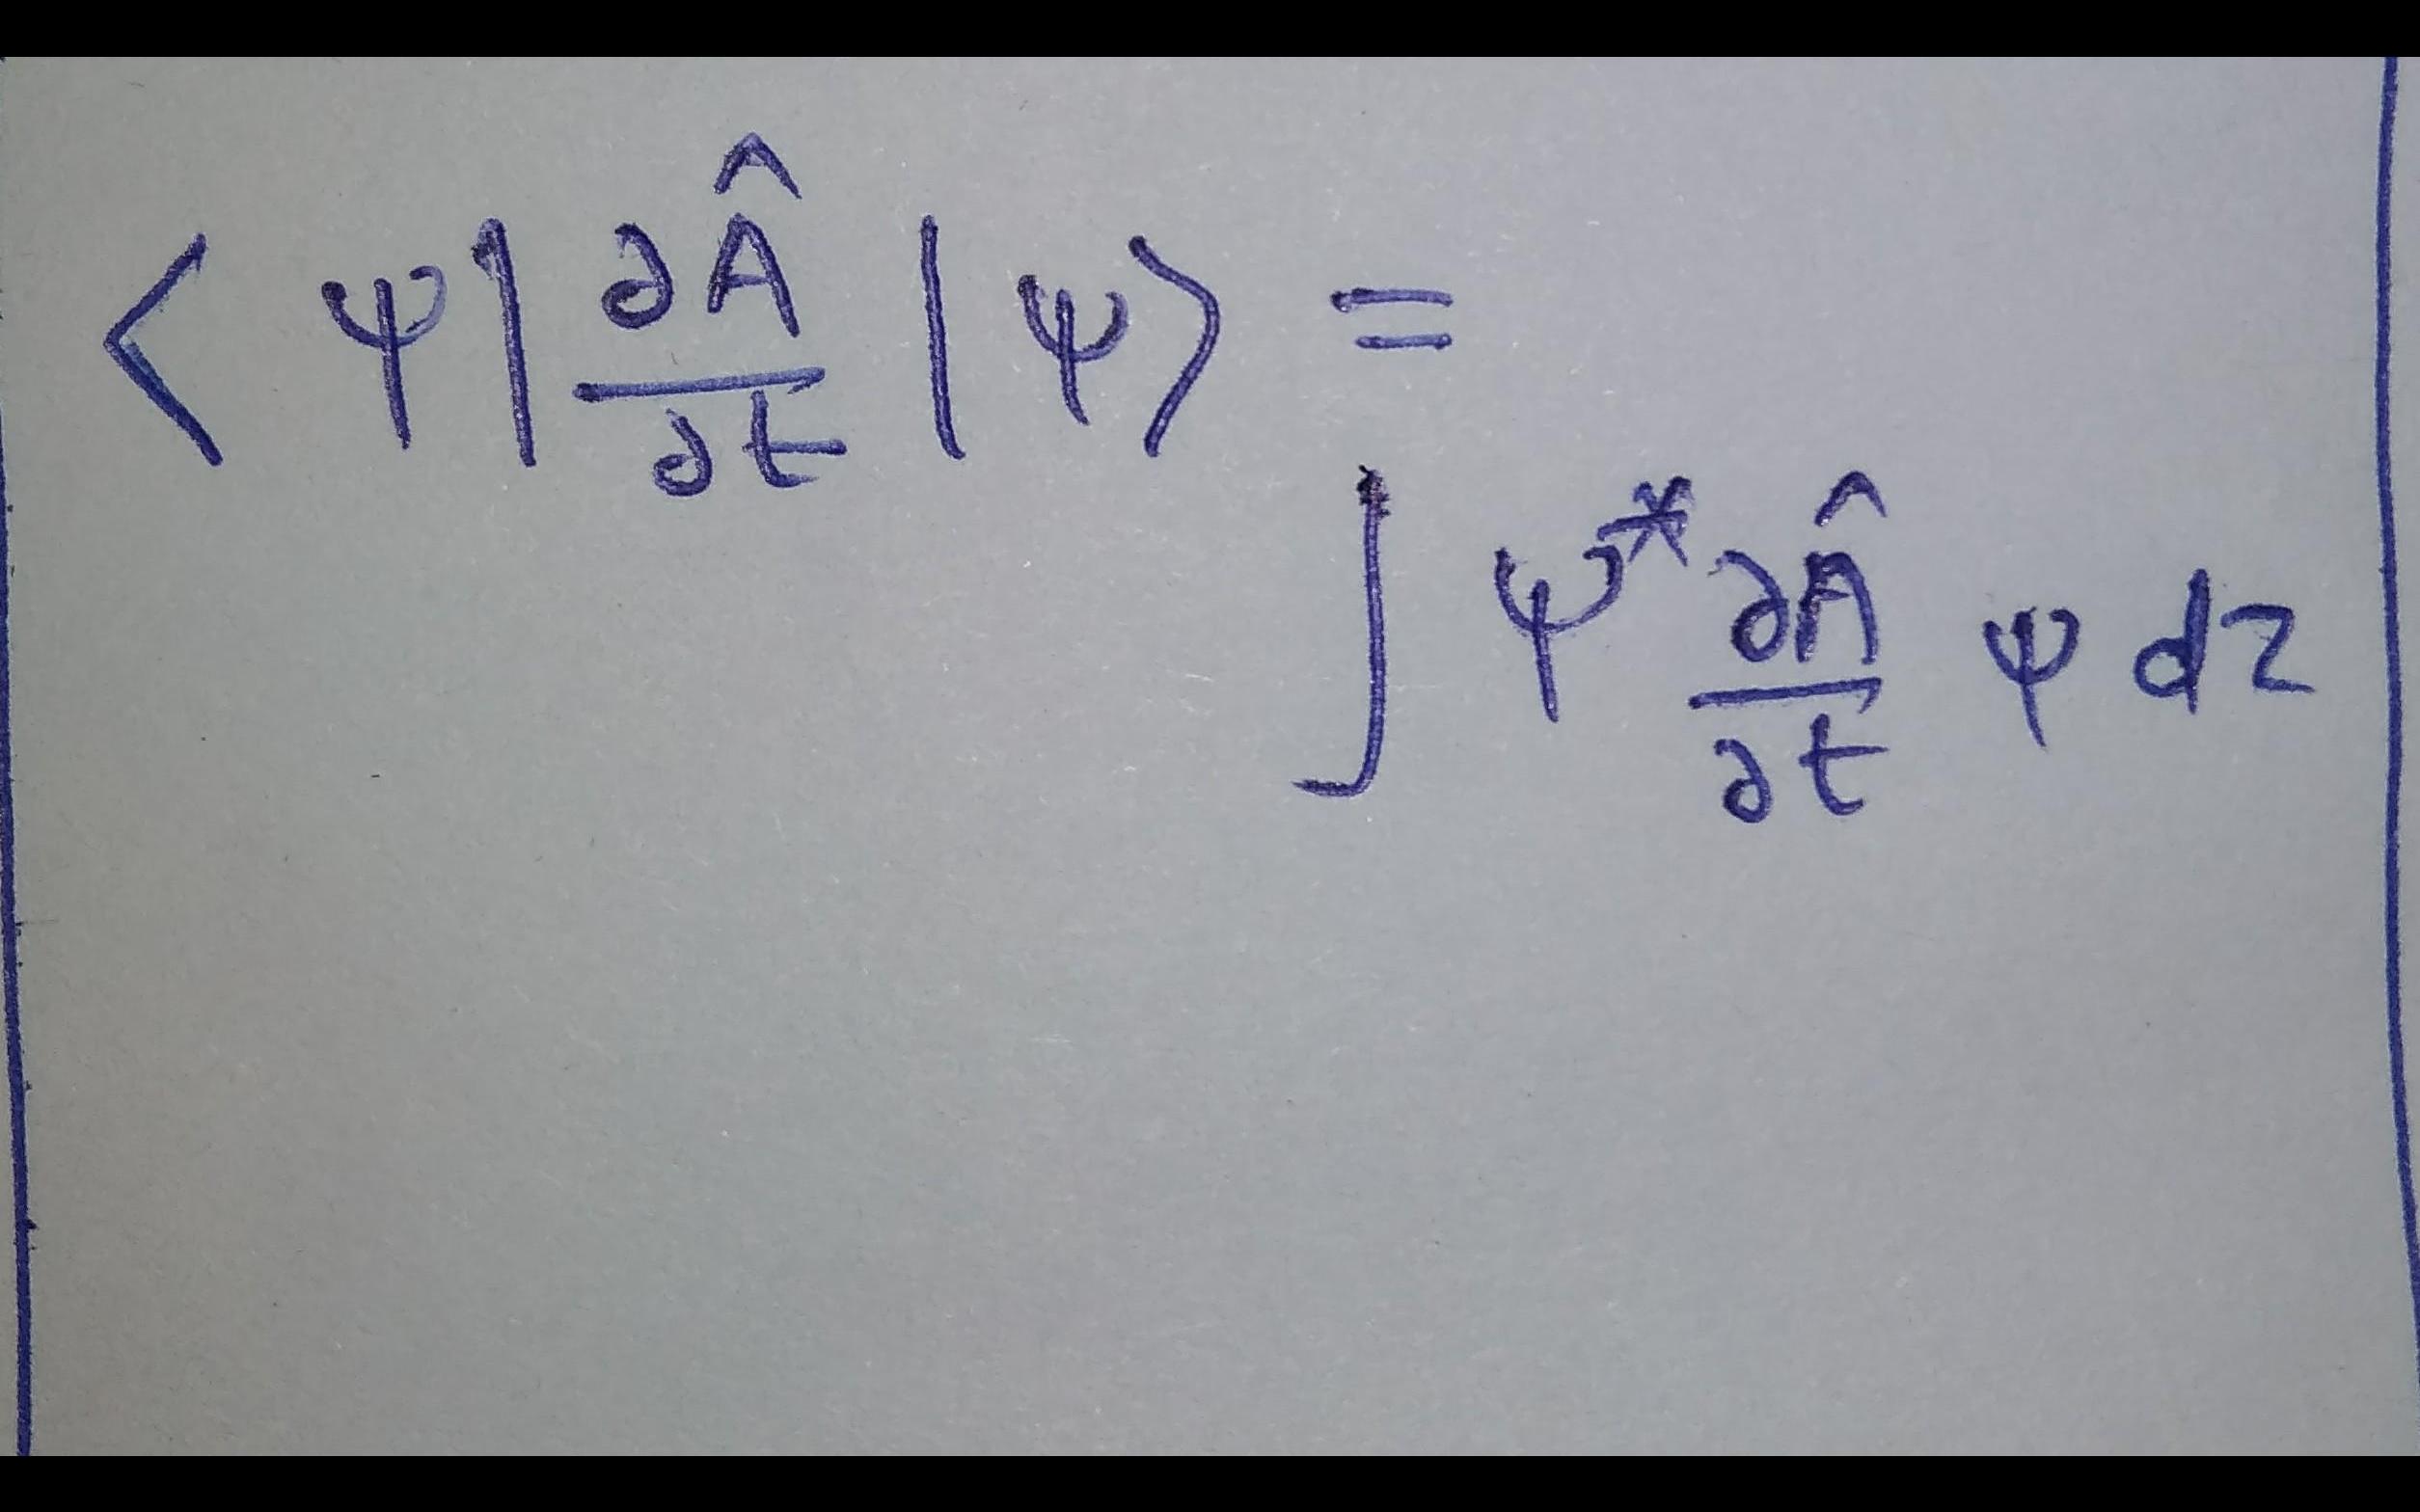 ⟨ψ|∂Â/∂t|ψ⟩ =
∫ ψ* ∂Â/∂t ψ dz